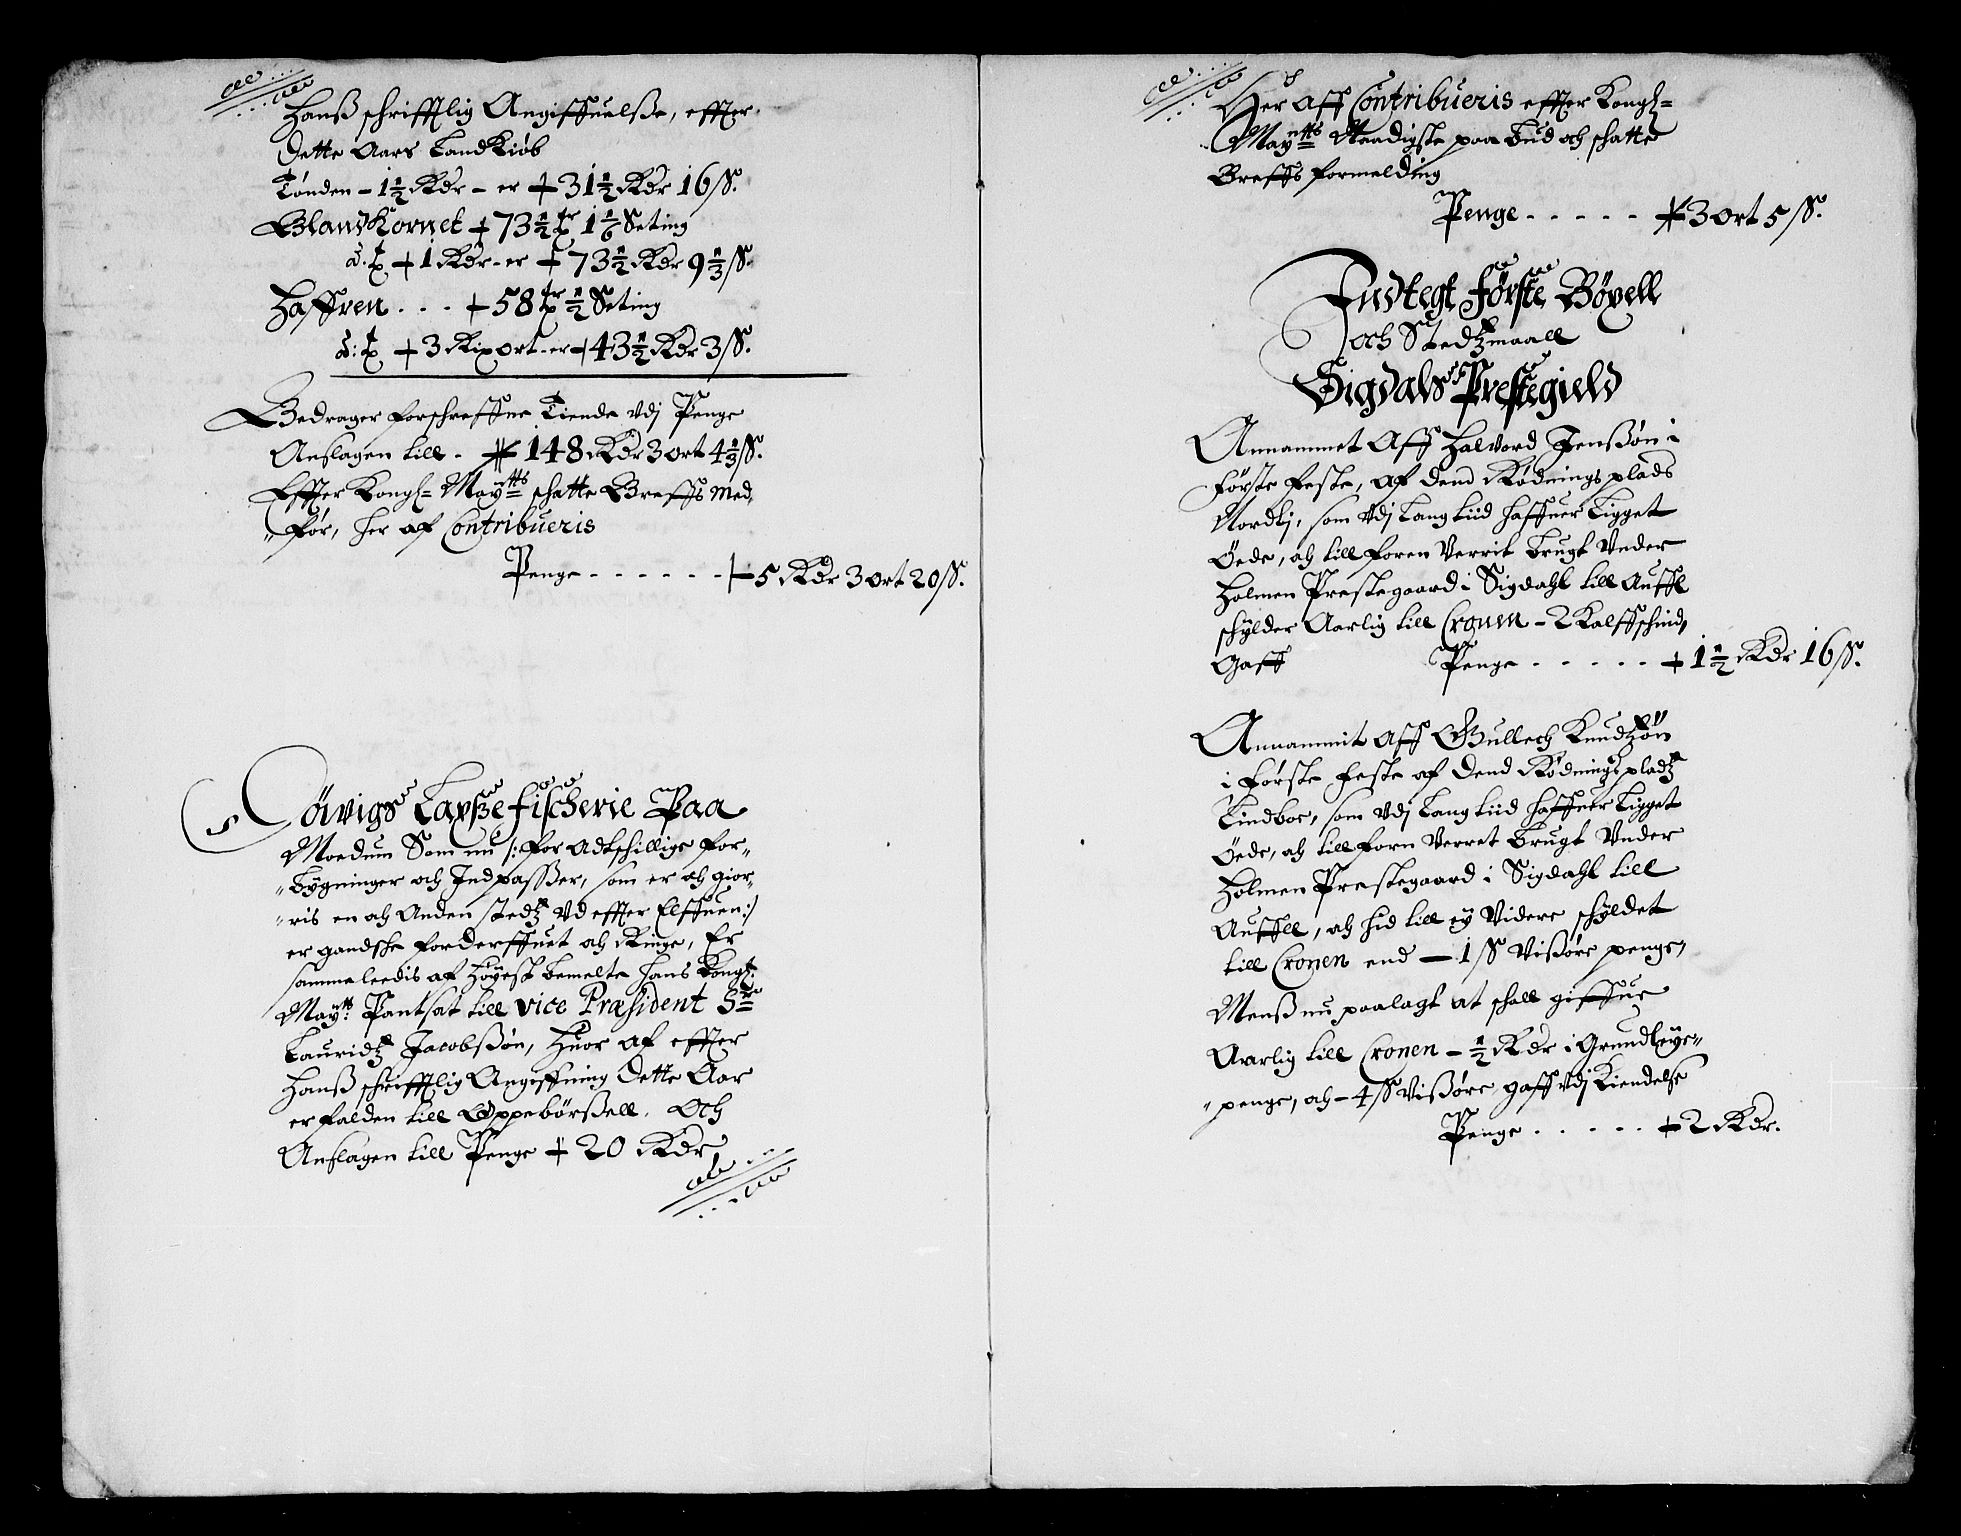 Hanß schrifftlig Angiffuelße, effter
dette Aars Landkiøb
Tønden - 1½ Rdr - er + 31½ Rdr 16 ß.
Blandkornet + 73½ tr 1⅙ Seting
+ 1 Rdr - er + 73½ Rdr 9⅓ ß.
Haffren . . . + 58 tr ½ Seting
+ 3 Rixort - er + 43½ Rdr 3 ß.
Bedrager forschreffne Tiende vdj Penge
Anslagen till . 148 Rdr 3 ort 4⅓ ß.
Effter Kongl= Maÿtts schatte Breffs med,,
,,før, her af Contribueris
Penge - - - - - - 5 Rdr 3 ort 20 ß.
Laxße fischerie Paa
Moedum Som nu /: for adtschillige for,,
,,bygninger och Indpasßer, som er och gior,,
,,ris en och anden stedtz vd effter Elffuen :/
er gandsche forderffuet och Ringe, Er
sammeleedis af høyest bemelte hans Kongl:
Maytt: Pantsat till vice Præsident Sr
Lauridtz Jacobßøn, huor af effter
Hanß schrifftlig Angiffning dette Aar
er falden till Oppebørßell. Och
Anslagen till Penge + 20 Rdr
Her aff Contribueris effter Kongl=
Maytts Naadigste paabud och schatte
Breffs formelding
Penge - - - - - 3 ort 5 ß.
Indtegt Første Bøxell
och Stedtzmaall
Sigdals Prestegield
Annammet aff Halvord Jenßøn i
første feste, af dend Rødnings plads
Nordlj, som vdj lang tiid haffuer ligget
Øede, och till foren verrit brugt vnder
Holmen Prestegaard i Sigdahl till Auffl
schylder Aarlig till Cronen - 2 Kalffschind,
Gaff Penge - - - - - + 1½ Rdr 16 ß.
Annammit aff Gullech Knudtzøn
i første feste af dend Rødningspladtz
Lindboe, som vdj lang tiid haffuer ligget
Øede, och till forn verret brugt vnder
Holmen Prestegaard i Sigdahl till
Auffll, och hid till ey videre schyldet
till Cronen end - 1 ß Vißøre penge,
Menß nu paalagt at schall giffue
Aarlig till Cronen - ½ Rdr i Grundleye,,
,,penge, och - 4 ß Vißøre, gaff vdj Kiendelse
Penge . . . . . + 2 Rdr.